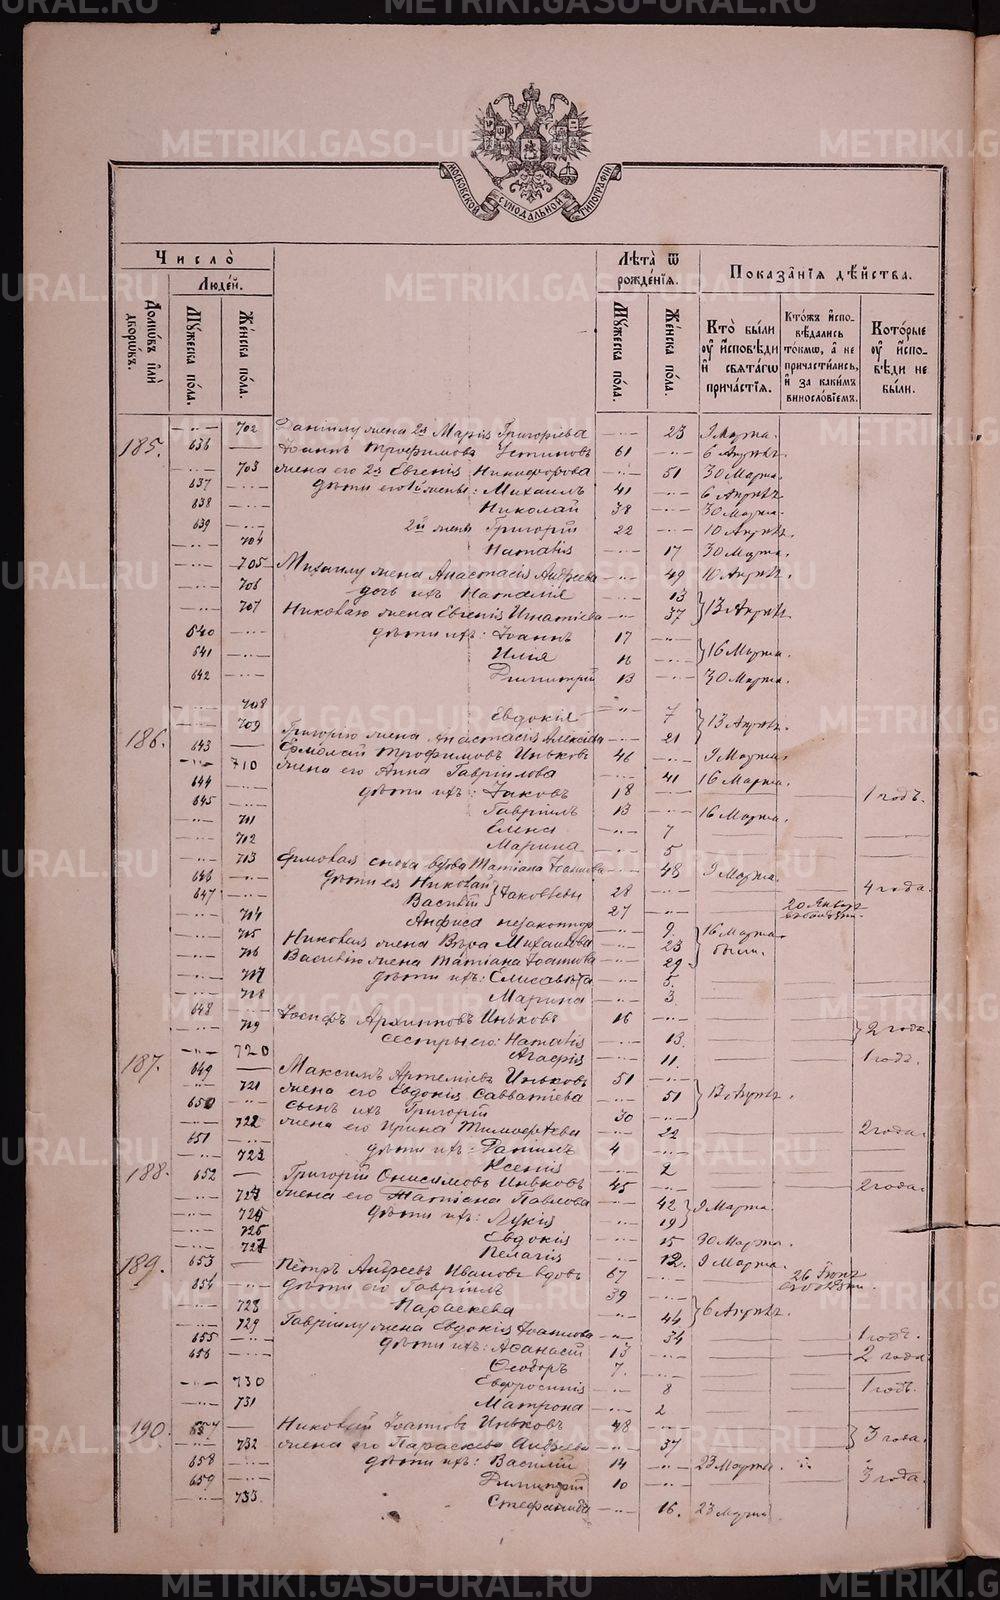 МОСКОВСКОЙ СѴНОДАЛЬНОЙ ТИПОГРАФІИ
Число̀
Люде́й.
Домѡ́въ и҆лѝ дворѡ́въ.
Мꙋ́жеска по́ла.
Же́нска по́ла.
Лѣ́та ѿ рожде́нїѧ.
Мꙋ́жеска по́ла.
Же́нска по́ла.
Показа̑нїѧ дѣ́йства.
Кто̀ бы́ли ᲂу҆ и҆сповѣ́ди и҆ свѧта́гѡ прича́стїѧ.
Кто́жъ и҆сповѣ́дались то́кмѡ, а҆ не причасти́лись, и҆ за каки́мъ винословїемъ.
Кото́рые ᲂу҆ и҆сповѣ́ди не бы́ли.
702 Даніилу жена 2я Марія Григоріева 23 9 Марта.
185. 636 Іоаннъ Трофимовъ Устиновъ 61 6 Апрѣля.
703 жена его 2я Евгенія Никифорова 51 30 Марта.
637 дѣти его 1й жены: Михаилъ 41 6 Апрѣля.
638 Николай 38 30 Марта.
639 2й жены Григорій 22 10 Апрѣля.
704 Наталія 17 30 Марта.
705 Михаилу жена Анастасія Андреева 49 10 Апрѣля.
706 дочь ихъ Наталія 13
707 Николаю жена Евгенія Игнатіева 37 13 Апрѣля.
640 дѣти ихъ: Іоаннъ 17
641 Илія 16 16 Марта.
642 Димитрій 13 30 Марта.
708 Евдокія 7
709 Григорію жена Анастасія Алексіева 21 13 Апрѣля.
186. 643 Ермолай Трофимовъ Иньковъ 46 9 Марта.
710 жена его Анна Гавріилова 41 16 Марта.
644 дѣти ихъ: Іаковъ 18 1 годъ.
645 Гавріилъ 13 16 Марта.
701 Елена 7
702 Марина 5
713 Ермолая сноха вдова Татіана Іоаннова 48 9 Марта.
646 дѣти ея Николай 28 4 года.
647 Василій } Іаковлевы 27 20 Января
714 Анфиса незаконнор 9.
705 Николая жена Вѣра Михаилова 23 16 Марта были.
706 Василію жена Татіана Іоаннова 29
717 дѣти ихъ: Елисавета 5.
718 Марина 3
648 Іосифъ Архиповъ Иньковъ 16
719 сестры его: Наталія 13. 2 года.
720 Агафія 11. 1 годъ.
187. 649 Максимъ Артеміевъ Иньковъ 51
721 жена его Евдокія Савватіева 51 13 Апрѣля.
650 сынъ ихъ Григорій 30
722 жена его Ирина Тимоѳеева 22 2 года.
651 дѣти ихъ: Даніилъ 4
723 Ксенія 2
188. 652 Григорій Онисимовъ Иньковъ 45 2 года.
724 жена его Татіана Павлова 42
725 дѣти ихъ: Лукія 19 9 Марта
726 Евдокія 15 30 Марта.
727 Пелагія 12. 9 Марта.
189. 653 Петръ Андреевъ Ивановъ вдовъ 67 26 Іюня
654 дѣти его Гавріилъ 39
728 Параскева 44 6 Апрѣля.
729 Гавріилу жена Евдокія Іоаннова 34 1 годъ.
655 дѣти ихъ: Аѳанасій 13 2 года
656 Ѳеодоръ 7.
730 Евфросинія 8 1 годъ.
731 Матрона 2
190. 657 Николай Іоанновъ Иньковъ 48
732 жена его Параскева Андреева 37 3 года.
658 дѣти ихъ: Василій 14 23 Марта.
659 Димитрій 10 3 года.
733 Стефанида 16. 23 Марта
METRIKI.GASO-URAL.RU